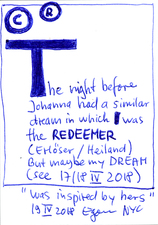 C R
The night before
Johanna had a similar
dream in which I was
the REDEEMER
(Erlöser / Heiland)
But maybe my DREAM
(see 17/18 IV 2018)
"was inspired by hers"
19 IV 2018 Egon NYC